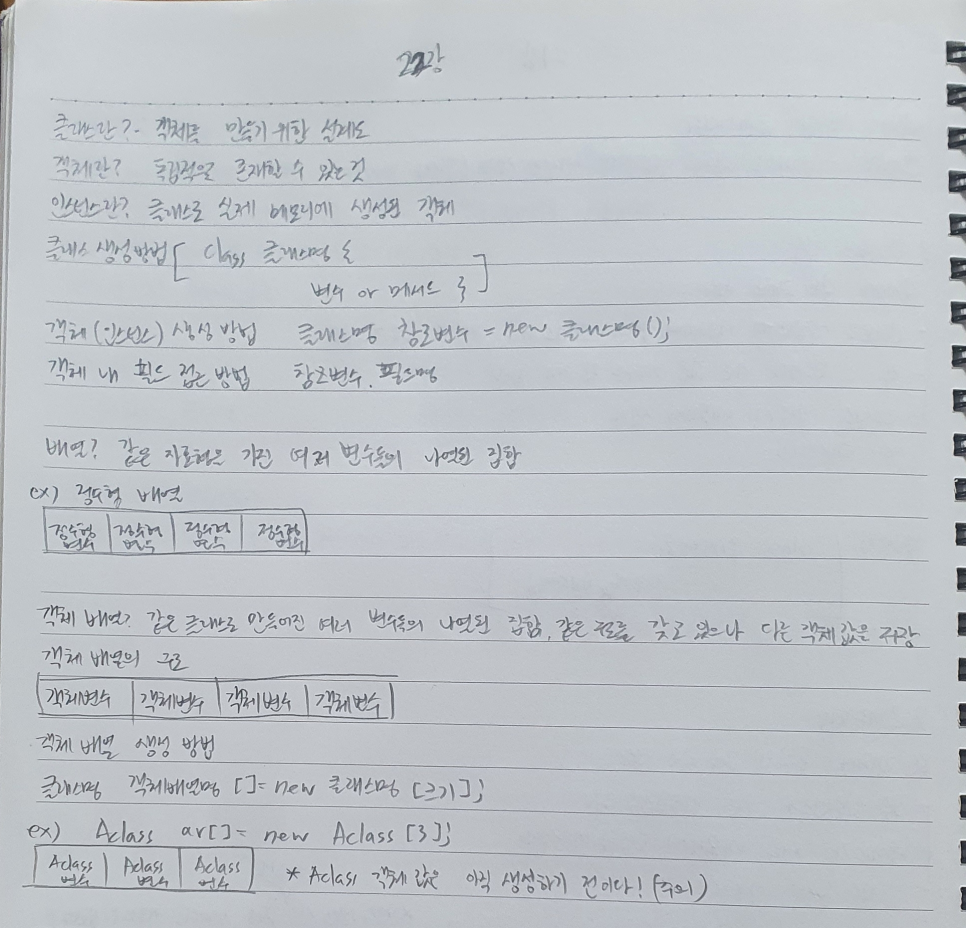 22강
클래스란? - 객체를 만들기 위한 설계도
객체란? 독립적으로 존재할 수 있는 것
인스턴스란? 클래스로 실제 메모리에 생성된 객체
클래스 생성방법 [ Class 클래스명 {
변수 or 메서드 } ]
객체(인스턴스) 생성 방법 클래스명 참조변수 = new 클래스명();
객체 내 필드 접근 방법 참조변수.필드명
배열? 같은 자료형을 가진 여러 변수들의 나열된 집합
ex) 정수형 배열
정수형 변수 정수형 변수 정수형 변수 정수형 변수
객체 배열? 같은 클래스로 만들어진 여러 변수들의 나열된 집합, 같은 필드를 갖고 있으나 다른 객체 값을 저장
객체 배열의 구조
객체변수 객체변수 객체변수 객체변수
객체 배열 생성 방법
클래스명 객체배열명 []= new 클래스명 [크기];
ex) Aclass ar[]= new Aclass [3];
Aclass 변수 Aclass 변수 Aclass 변수 * Aclass 객체 값은 아직 생성하기 전이다! (주의)